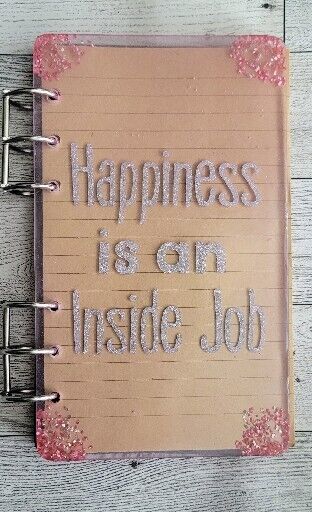 Happiness
is an
Inside Job